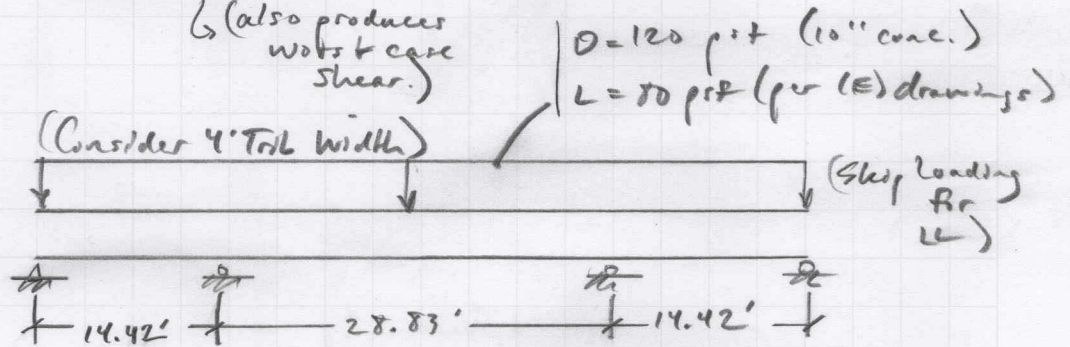 (also produces
worst case
shear.)
D=120 psf (10" conc.)
L=80 psf (per (E) drawings)
(Consider 4' Trib Width)
(Skip Loading
for
LL)
14.42'
28.83'
14.42'